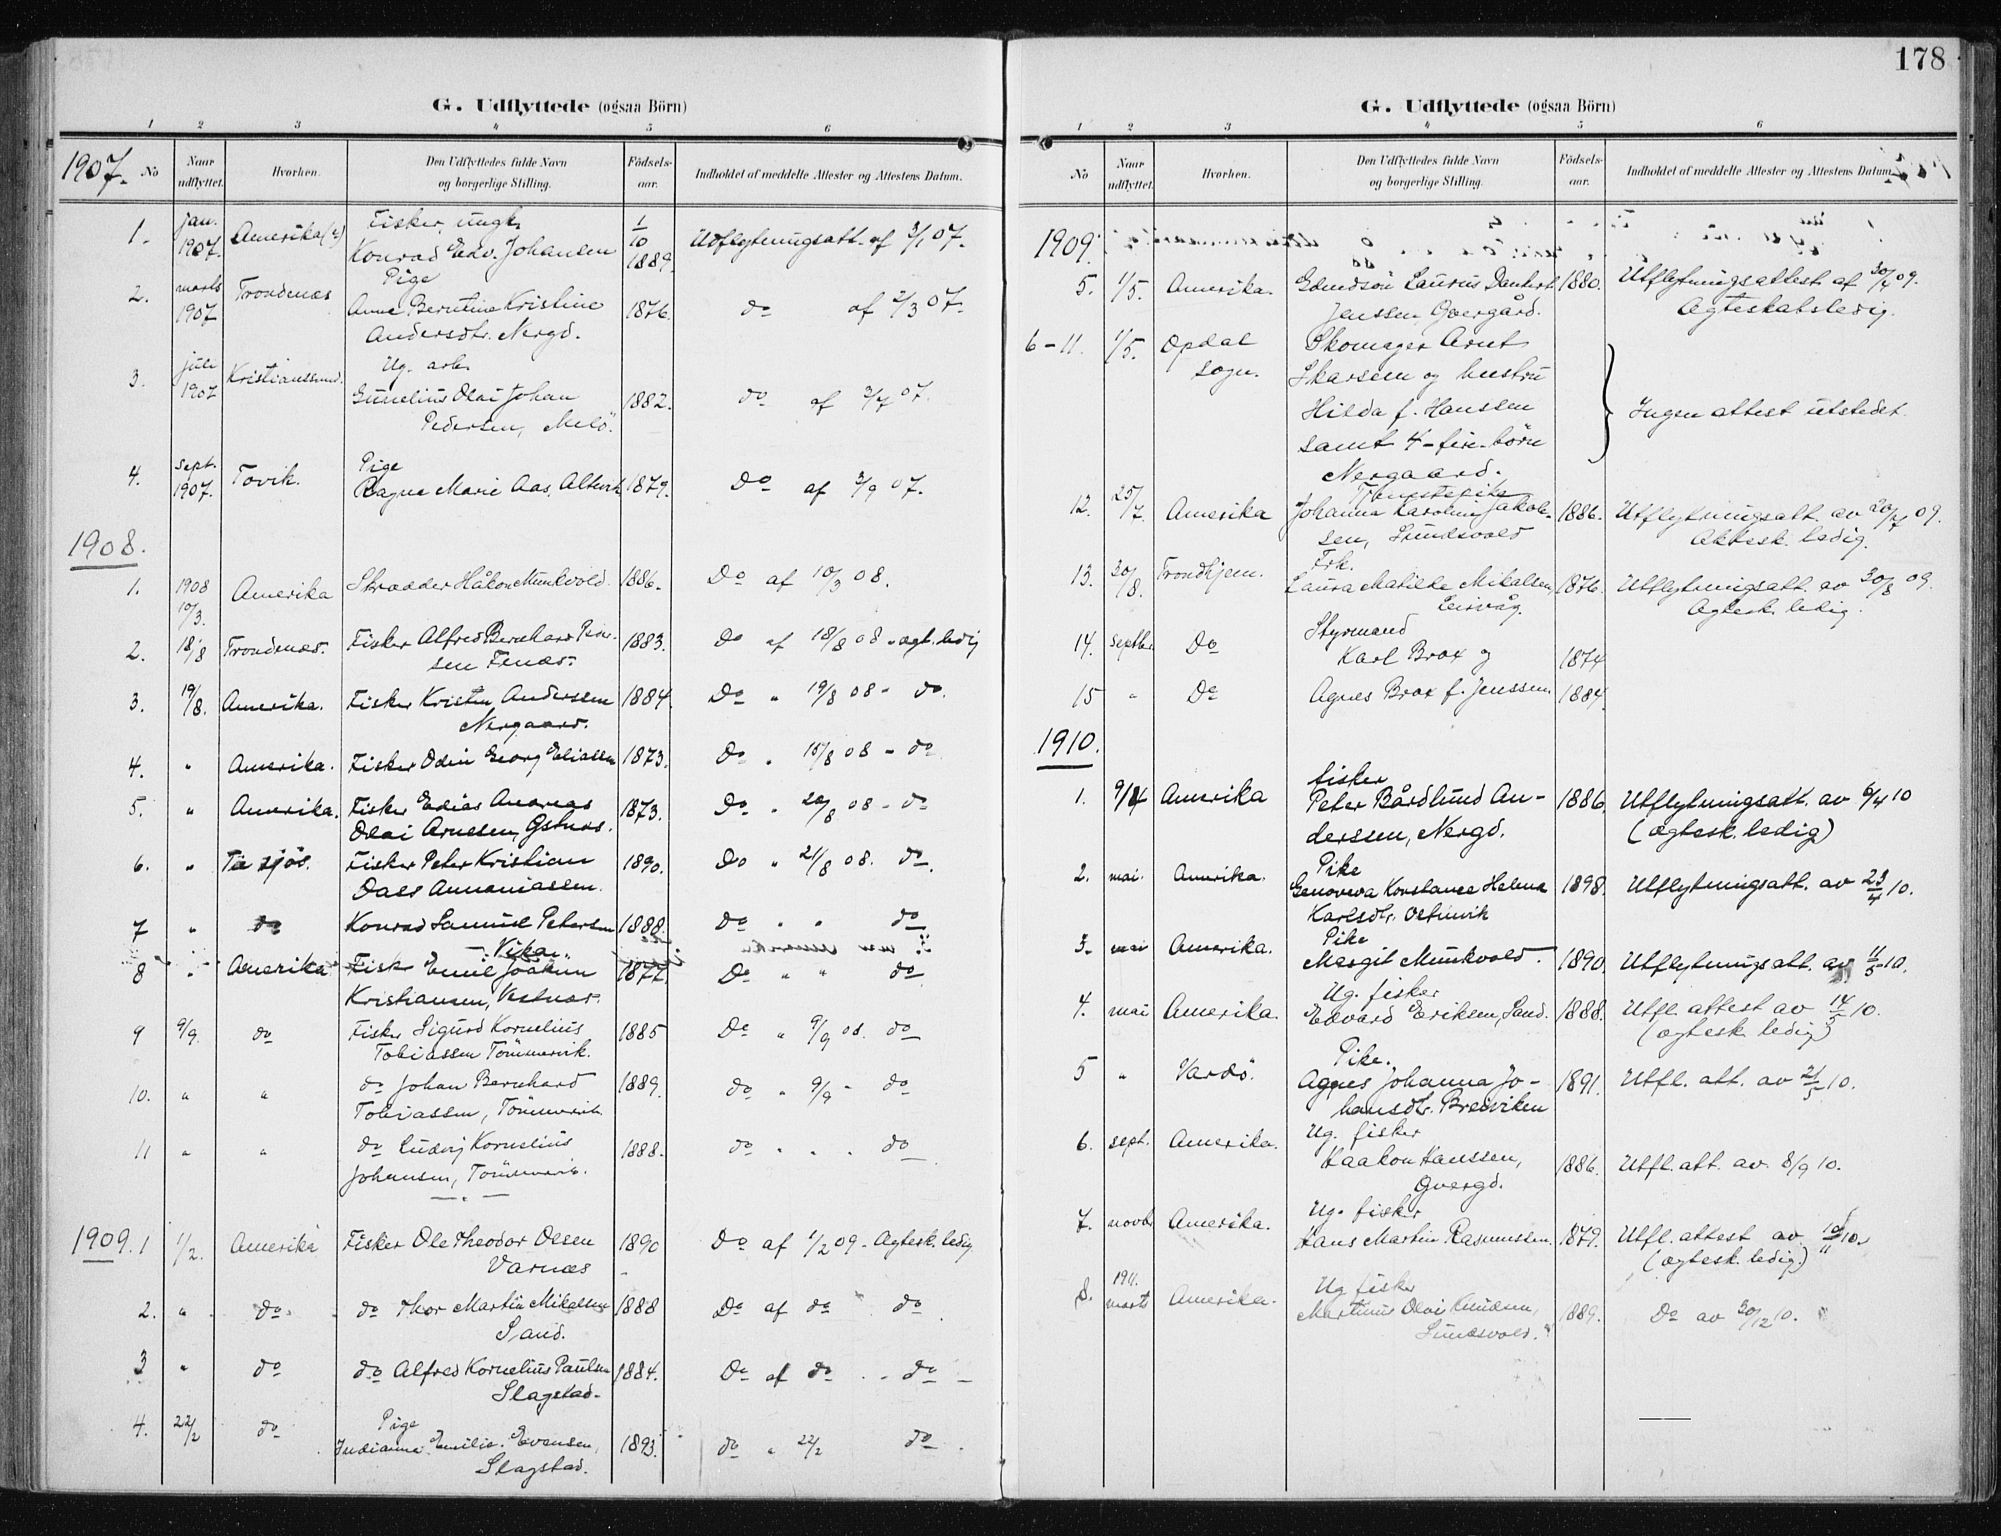 G. Udflyttede (ogsaa Börn)
1 2 3 4 5 6
1907. No
Naar udflyttet.
Hvorhen.
Den Udflyttedes fulde Navn og borgerlige Stilling.
Födsels-aar.
Indholdet af meddelte Attester og Attestens Datum.
1. jan. 1907. Amerika
Fisker, ungk.
Konrad Edv. Johansen
1/10 1889.
Udflytningsatt. af 3/1 07.
2. marts 1907 Trondenæs
Pige
Anna Berntine Kristine
Andersdtr. Nergd.
1876.
do af 2/3 07.
3. juli 1907 Kristianssund.
Ug. arb.
Gunelius Olai Johan
Pedersen, Melö.
1882.
do af 3/7 07.
4. sept. 1907. Tovik.
Pige
Ragna Marie Aas, Altevik
1879.
Do af 3/9 07.
1908.
1. 1908 10/3. Amerika
Skrædder Håkon Munkvold.
1886.
Do af 10/3 08.
2. 18/8 Trondenæs.
Fisker Alfred Bernhard
sen Fenæs.
1883.
Do af 18/8 08. ægt. ledig
3. 19/8. Amerika.
Fisker Kristen Anderssen
Nergaard.
1884.
Do " 19/8 08 - do.
4. " Amerika.
Fisker Odin Georg Eliassen
1873.
Do " 18/8 08 - do
5. " Amerika.
Fisker Edias Andreas
Olai Arnesen,
1873.
Do " 20/8 08 - do
6. "
Fisker Peter Kristian
Annaniassen.
1890.
Do " 21/8 08. do
7 " do
Konrad Samuel Petersen
Vika.
1888.
Do " " do
8 " Amerika
Fisk Emil Joakim
Kristiansen, Vestnæs.
1877.
Do " " do
9 9/9. do
Fisker Sigurd Kornelius
Tobiassen Tömmervik.
1885
Do " 9/9 08. do
10. " "
do Johan Bernhard
Tobiassen, Tömmervik
1889.
do " 9/9 - do
11 " "
do Ludvig Kornelius
Johansen, Tömmervik.
1888.
do " " do
1909. 1 1/2. Amerika
Fisker Ole Theodor Olsen
Varnæs
1890
Do af 1/2 09 - Ægtesk. ledig
2. " do
do Thor Martin Mikalsen
Sand.
1888
Do af do do
3 " do
do Alfred Kornelius Paulsen
Slagstad.
1884.
Do af do - do -
4. 22/2 do
Pige
Indianna Emilie Evensen,
Slagstad.
1893.
do " 22/2 do
178
G. Udflyttede (ogsaa Börn)
1 2 3 4 5 6
No
Naar udflyttet.
Hvorhen.
Den Udflyttedes fulde Navn og borgerlige Stilling.
Födsels-aar.
Indholdet af meddelte Attester og Attestens Datum.
1909.
5. 1/5. Amerika.
Laurus Dankert
Jenssen Overgård.
1880.
Utflytningsattest af 30/4 09.
Ægteskabsledig.
6-11. 1/5. Opdal sogn.
Skomager Arnt
Skarsem og hustru
Hilda f. Hanssen
samt 4-fire-börn
Nergaard.
Ingen attest utstedet.
12. 25/7. Amerika
Tjenestepike
Johanna Karoline Jakob-
sen, Sundsvold
1886.
Utflytningsatt. av 20/7 09.
Ektesk. ledig.
13. 20/8. Trondhjem.
Frk.
Laura Matilde Mikalsen
Leirvåg.
1876.
Utflytningsatt. av 20/8 09.
Ægtesk. ledig.
14. septbr. Do
Styrmand
Karl Brox og
1874
15 " Do
Agnes Brox f. Jenssen.
1884.
1910.
1. 9/4 Amerika
fisker
Peter Bårdlund An-
derssen, Nergd.
1886.
Utflytningsatt. av 6/4 10
(ægtesk. ledig)
2. mai. Amerika.
Pike
Genoveva Konstance Helena
Karlsdtr.
1898.
Utflytningsatt. av 23/4 10.
3. mai Amerika.
Pike
Margit Munkvold.
1890.
Utflytningsatt. av 11/5 10.
4. mai Amerika.
Ug. fisker
Edvard Eriksen, Sand.
1888.
Utfl. attest av 14/5 10.
(ægtesk. ledig)
5 " Vardö.
Pike.
Agnes Johanna Jo-
hansdtr. Breiviken
1891.
Utfl. att. av 21/5 10.
6. sept. Amerika.
Ug. fisker
Haakon Hanssen,
Overgd.
1886.
Utfl. att. av. 8/9 10.
7. novbr Amerika.
Ug. fisker
Hans Martin Rasmussen.
1879.
Utfl. attest av 10/11 10.
(ægtesk. ledig.)
8. 1911. marts Amerika.
Ug fisker
Martinus Olai Knudsen,
Sundsvold.
1889.
Do av 30/12 10.